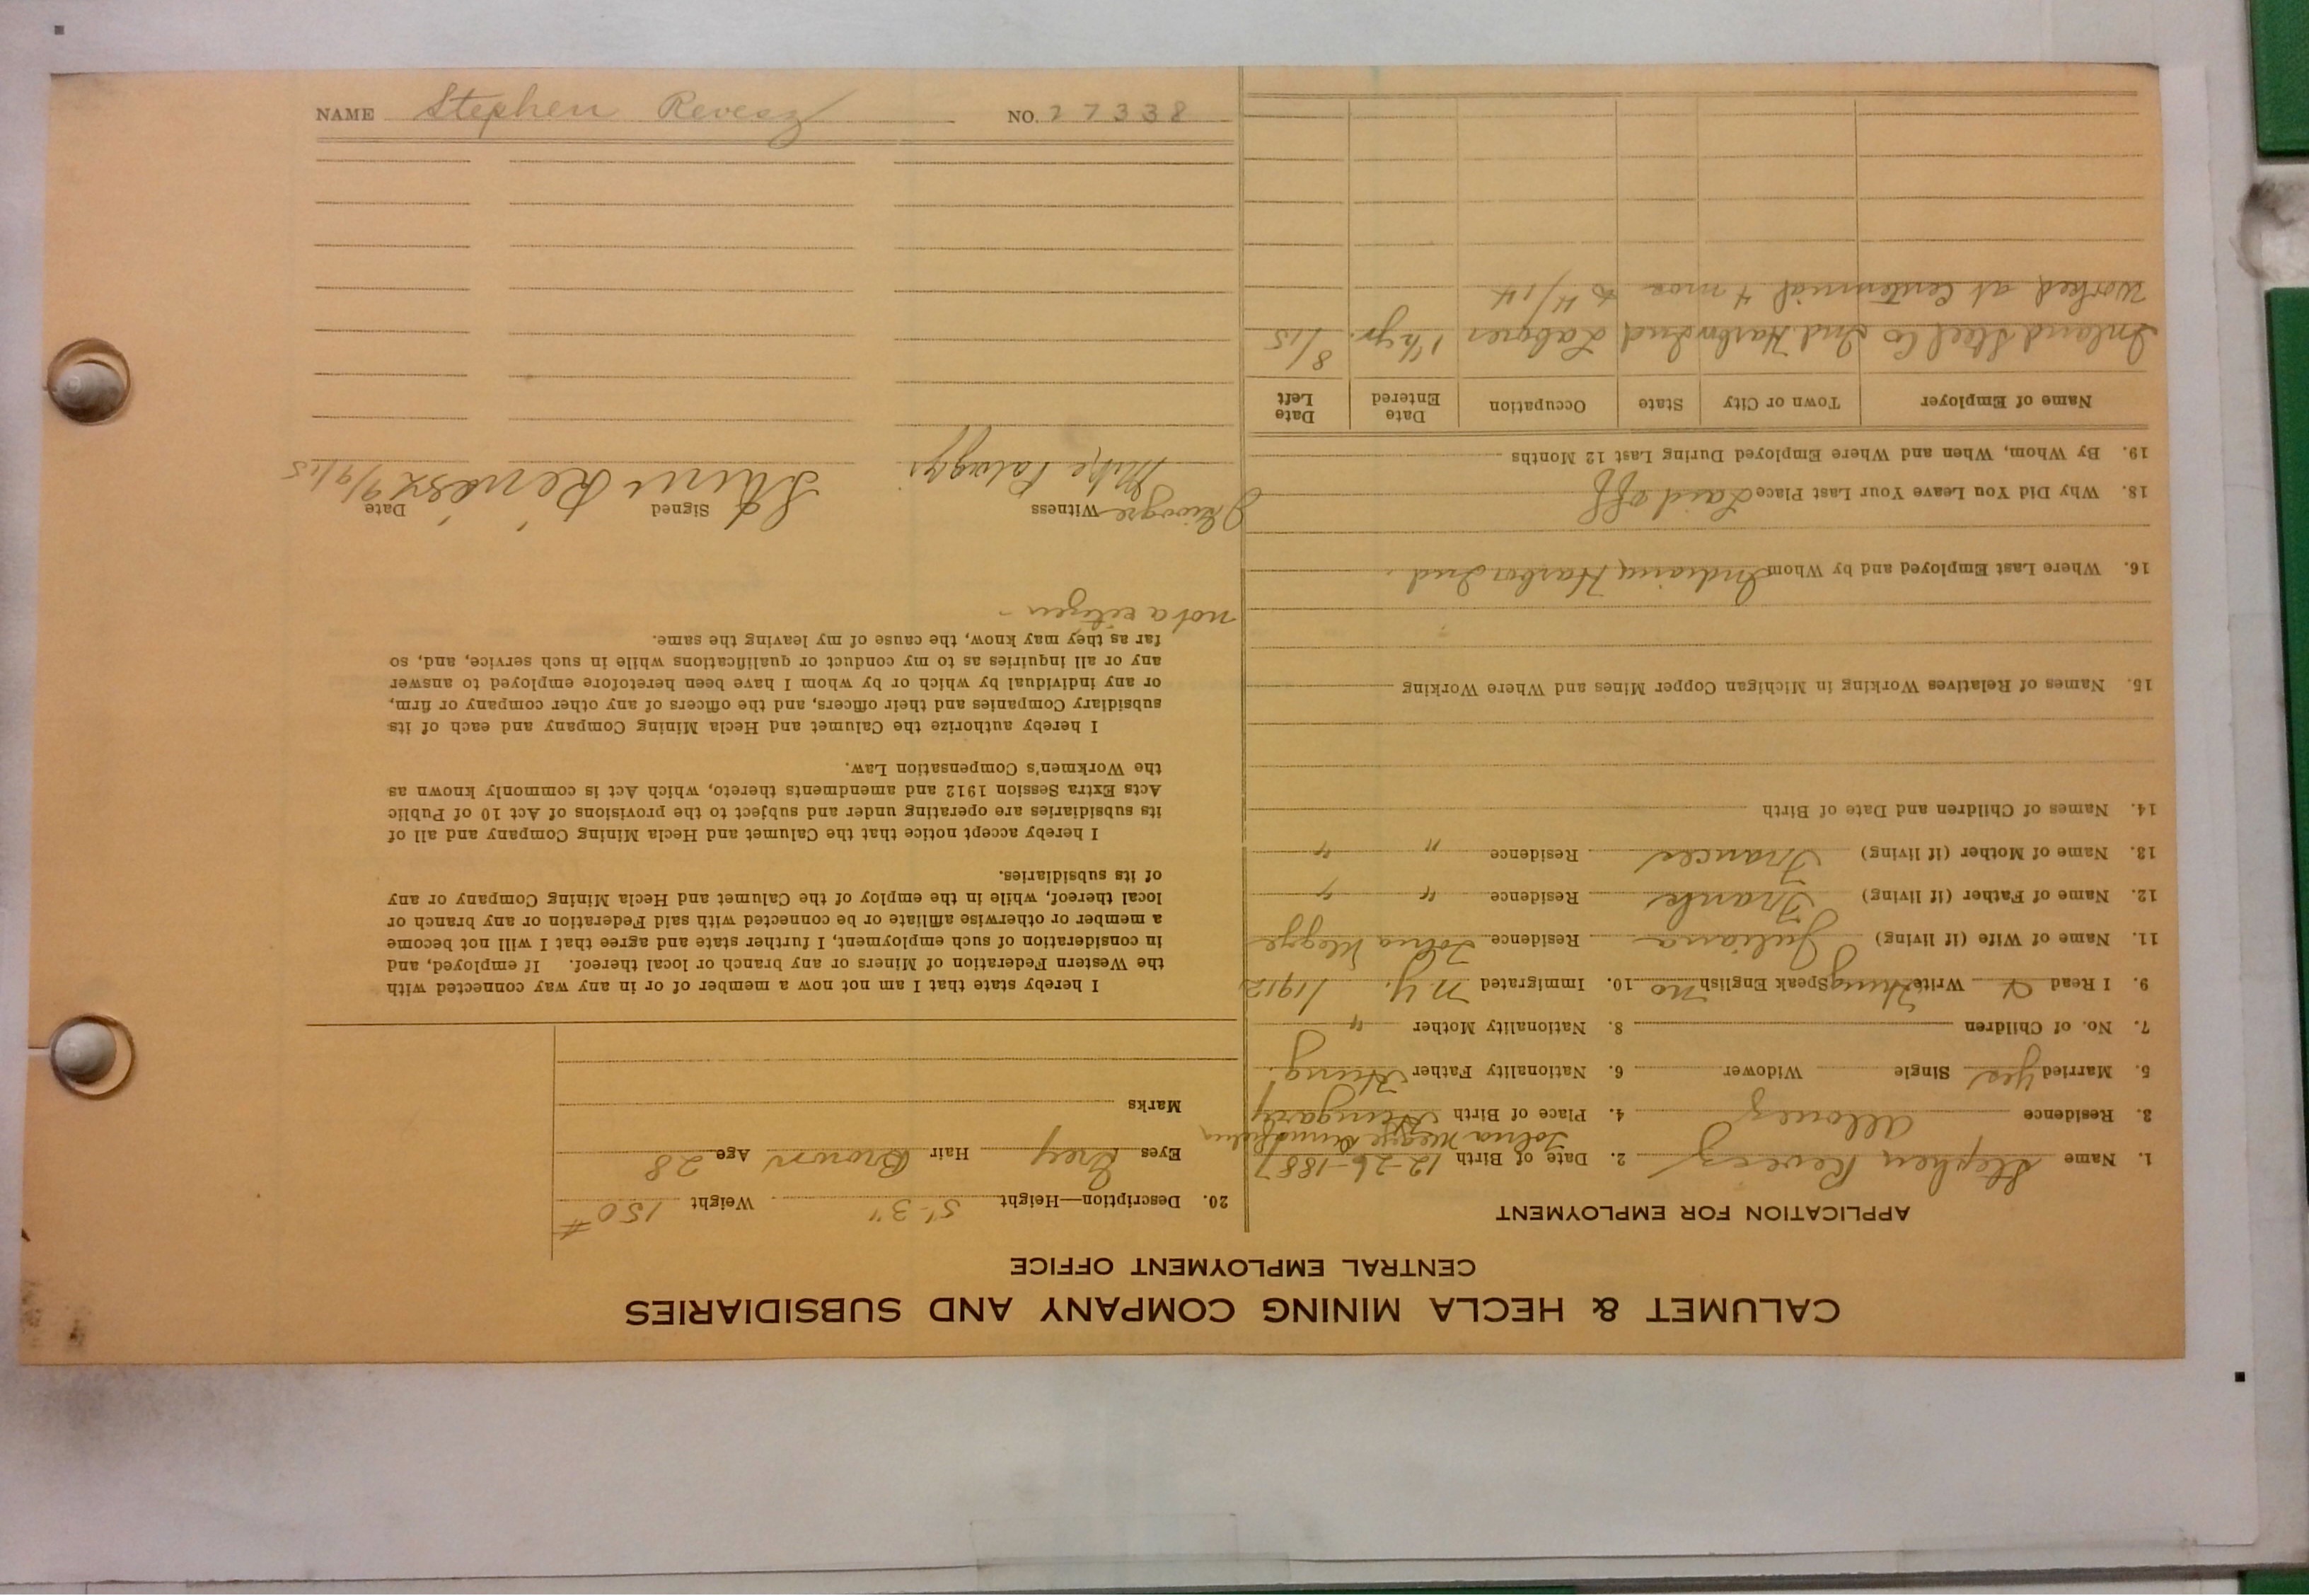 NAME Stephen Revesz NO. 27338
CALUMET & HECLA MINING COMPANY AND SUBSIDIARIES
CENTRAL EMPLOYMENT OFFICE
APPLICATION FOR EMPLOYMENT
1. Name Stephen Revesz 2. Date of Birth 12-26-1887
3. Residence Allouez 4. Place of Birth Hungary
5. Married yes Single Widower 6. Nationality Father Hung.
7. No. of Children 8. Nationality Mother "
9. I Read Write Hung Speak English no 10. Immigrated N.Y. 1912
11. Name of Wife (if living) Juliana Residence Tolna Megye
12. Name of Father (if living) Frank Residence " "
13. Name of Mother (if living) Frances Residence " "
14. Names of Children and Date of Birth
15. Names of Relatives Working in Michigan Copper Mines and Where Working
16. Where Last Employed and by Whom Indiana Harbor Ind.
18. Why Did You Leave Your Last Place Laid off
19. By Whom, When and Where Employed During Last 12 Months
Name of Employer Town or City State Occupation Date Entered Date Left
Inland Steel Co Ind Harbor Ind Laborer 1½ yr. 8/15
Worked at Centennial 4 mos to 4/14
20. Description—Height 5'-3" Weight 150#
Eyes Grey Hair Brown Age 28
Marks
I hereby state that I am not now a member of or in any way connected with
the Western Federation of Miners or any branch or local thereof. If employed, and
in consideration of such employment, I further state and agree that I will not become
a member or otherwise affiliate or be connected with said Federation or any branch or
local thereof, while in the employ of the Calumet and Hecla Mining Company or any
of its subsidiaries.
I hereby accept notice that the Calumet and Hecla Mining Company and all of
its subsidiaries are operating under and subject to the provisions of Act 10 of Public
Acts Extra Session 1912 and amendments thereto, which Act is commonly known as
the Workmen's Compensation Law.
I hereby authorize the Calumet and Hecla Mining Company and each of its
subsidiary Companies and their officers, and the officers of any other company or firm,
or any individual by which or by whom I have been heretofore employed to answer
any or all inquiries as to my conduct or qualifications while in such service, and, so
far as they may know, the cause of my leaving the same.
not a citizen -
Witness Signed Date
Mike Révész 9/9/15